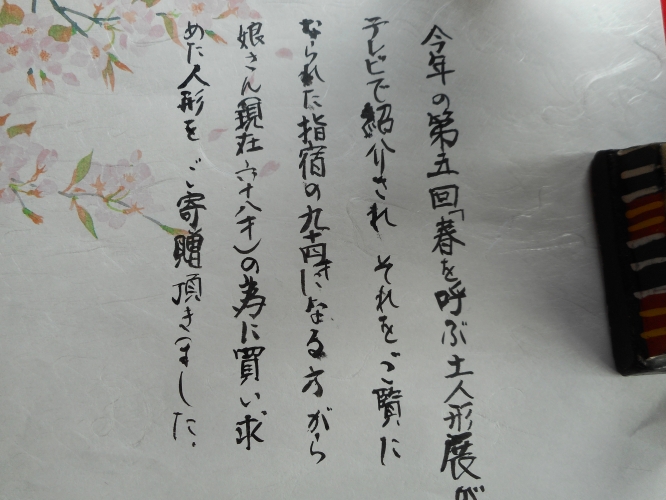 今年の第五回「春を呼ぶ土人形展が
テレビで紹介され それをご覧に
なられた指宿の九十四才になる方から
娘さん(現在六十八才)の為に買い求
めた人形をご寄贈頂きました.